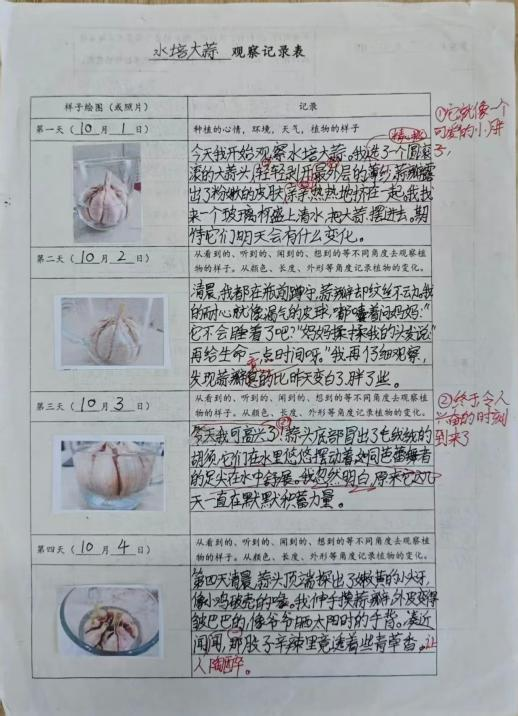 水培大蒜 观察记录表
样子绘图（或照片）
记录
第一天（10月1日）
种植的心情，环境，天气，植物的样子
①它就像一个
可爱的小胖
子，
精心挑
今天我开始观察水培大蒜。我选了个圆滚
滚的大蒜头，轻轻剥开最外层的薄纱，蒜瓣露
出了粉嫩的皮肤，亲亲热热地挤在一起。我找
来一个玻璃杯盛上清水，把大蒜摆进去。期
待它们明天会有什么变化。
第二天（10月2日）
从看到的、听到的、闻到的、想到的等不同角度去观察植
物的样子。从颜色、长度、外形等角度记录植物的变化。
清晨，我都在瓶前蹲守，蒜瓣却纹丝不动。我
的耐心就像漏气的皮球，嘟囔着问妈妈：“
它不会睡着了吧？”妈妈揉揉我的头发说：“
再给生命一点时间呀。”我再仔细观察，
发现蒜瓣真的比昨天变白了，胖了些。
第三天（10月3日）
从看到的、听到的、闻到的、想到的等不同角度去观察植
物的样子。从颜色、长度、外形等角度记录植物的变化。
②终于令人
兴奋的时刻
到来了
今天我可高兴了！蒜头底部冒出了毛绒绒的
胡须，它们在水里悠悠摆动着，如同芭蕾舞者
的足尖在水中舒展。我忽然明白，原来它这几
天一直在默默积蓄力量。
第四天（10月4日）
从看到的、听到的、闻到的、想到的等不同角度去观察植
物的样子。从颜色、长度、外形等角度记录植物的变化。
第四天清晨，蒜头顶端探出了嫩黄的小火牙，
像小鸡破壳的喙。我伸手摸蒜瓣，外皮变得
皱巴巴的，像爷爷晒太阳时的手背。凑近
闻闻，那股子辛辣里竟透着些青草香。让
人陶醉。